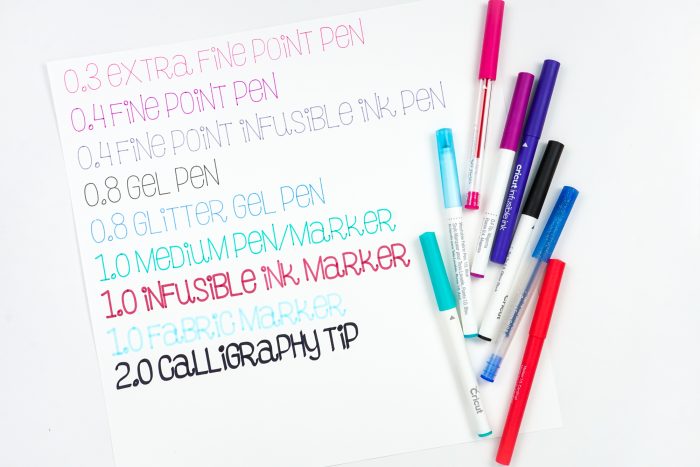 0.3 EXTRA FINE POINT PEN
0.4 FINE POINT PEN
0.4 FINE POINT INFUSIBLE INK PEN
0.8 GEL PEN
0.8 GLITTER GEL PEN
1.0 MEDIUM PEN/MARKER
1.0 INFUSIBLE INK MARKER
1.0 FABRIC MARKER
2.0 CALLIGRAPHY TIP
cricut infusible ink
cricut
Cricut